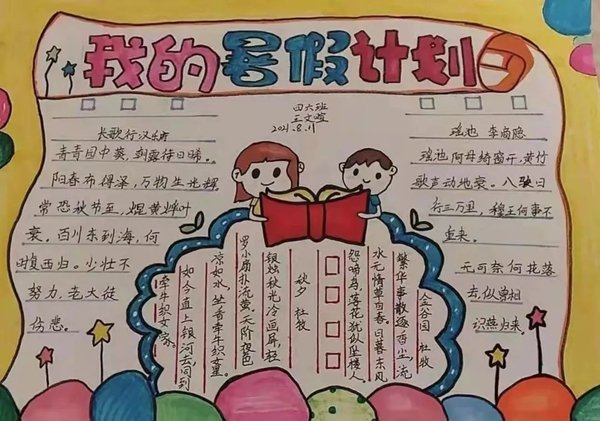 我的暑假计划
四六班
王文喧
2021.8.11
长歌行 汉乐府
青青园中葵,朝露待日晞。
阳春布得泽,万物生光辉
常恐秋节至,焜黄华叶
衰。百川东到海,何
时复西归。少壮不
努力,老大徒
伤悲。
瑶池 李商隐
瑶池阿母绮窗开,黄竹
歌声动地哀。八骏日
行三万里,穆王何事不
重来。
无可奈何花落
去,似曾相
识燕归来。
金谷园 杜牧
繁华事散逐香尘,流
水无情草自春。日暮东风
怨啼鸟,落花犹似坠楼人。
秋夕 杜牧
银烛秋光冷画屏,轻
罗小扇扑流萤。天阶夜色
凉如水,坐看牵牛织女星。
如今直上银河去,同到
牵牛织女家。